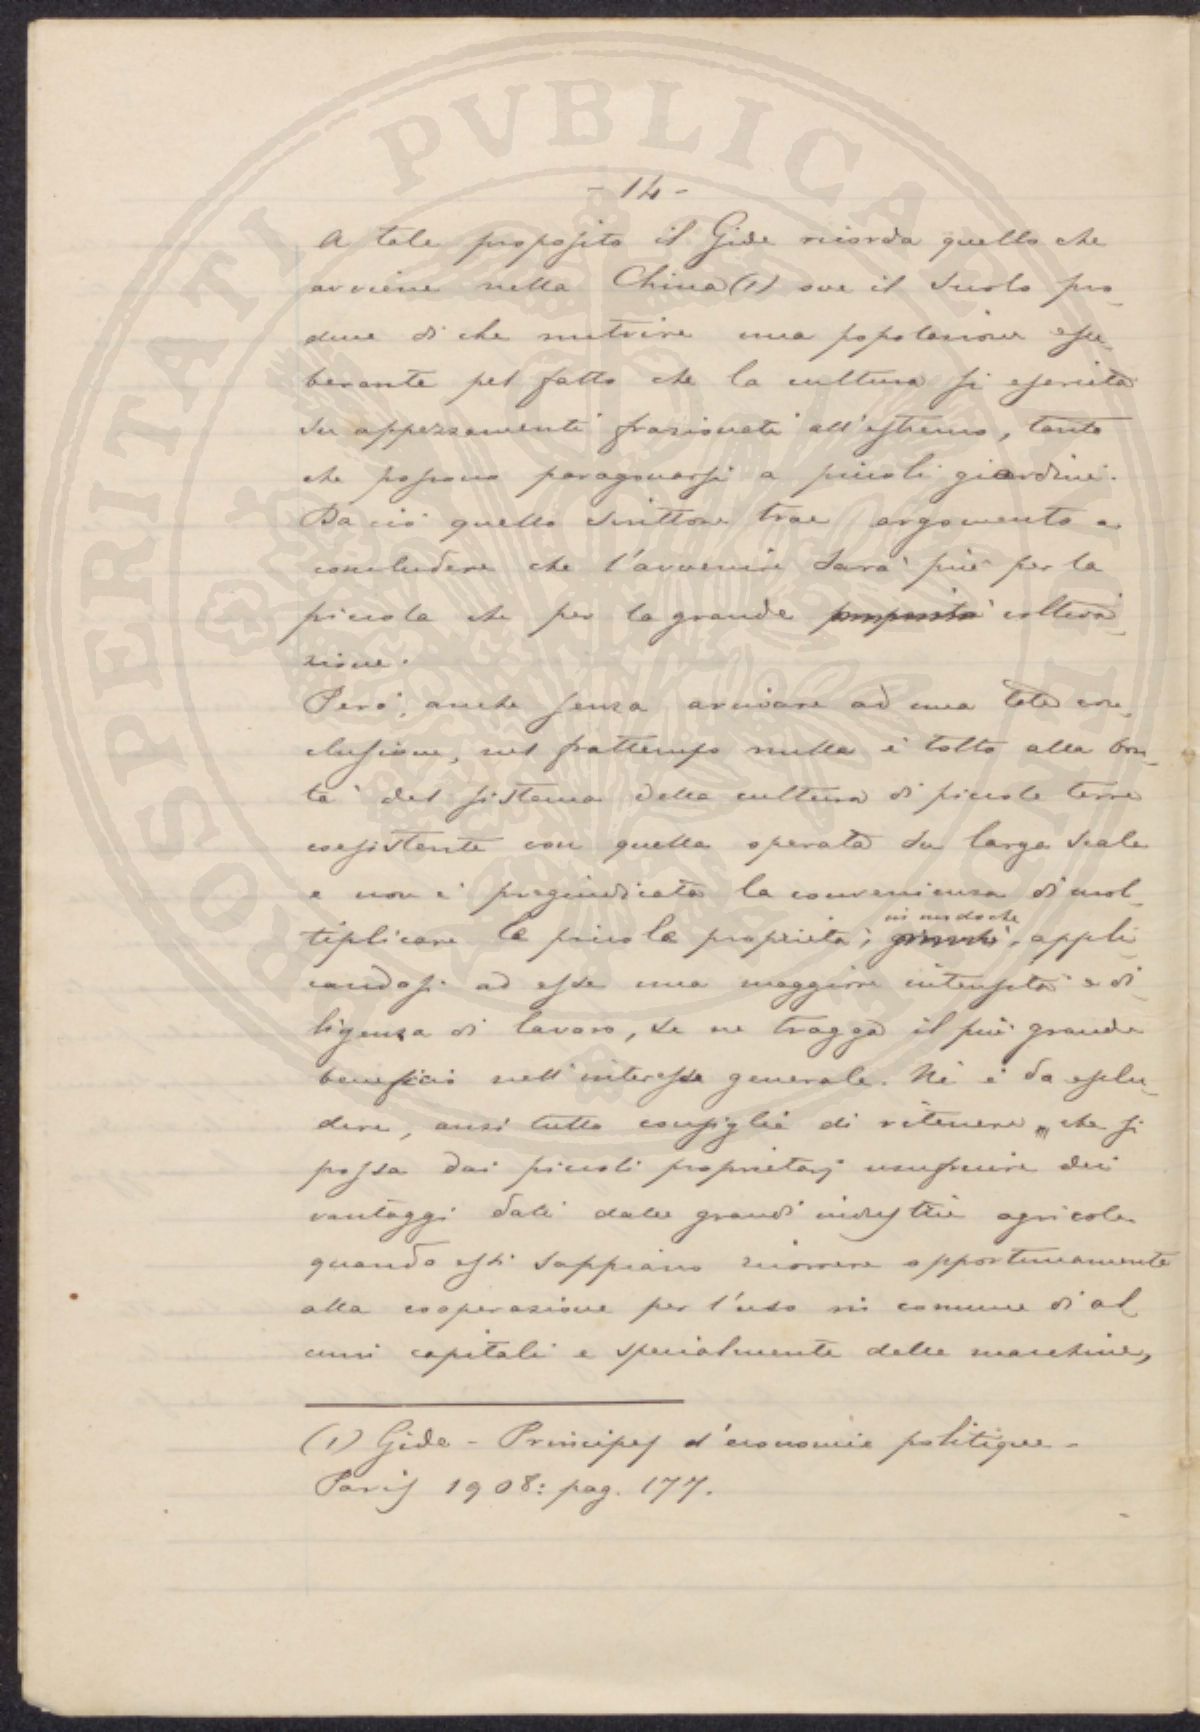 - 14 -
A tale proposito il Gide ricorda quello che
avviene nella China (1) ove il suolo pro-
duce di che nutrire una popolazione esu-
berante pel fatto che la cultura si esercita
su appezzamenti frazionati all'estremo, tanto
che possono paragonarsi a piccoli giardini.
Da ciò quello scrittore trae argomento a
concludere che l'avvenire sarà più per la
piccola che per la grande coltiva-
zione.
Però, anche senza arrivare ad una tale con-
clusione, nel frattempo nulla è tolto alla bon-
tà del sistema della cultura di piccole terre
coesistente con quella operata su larga scala
e non è pregiudicata la convenienza di mol-
tiplicare le piccole proprietà, in modo che, appli-
candosi ad esse una maggiore intensità e di-
ligenza di lavoro, se ne tragga il più grande
beneficio nell'interesse generale. Nè è da esclu-
dere, anzi tutto consiglia di ritenere, che si
possa dai piccoli proprietarj usufruire dei
vantaggi dati dalle grandi industrie agricole
quando essi sappiano ricorrere opportunamente
alla cooperazione per l'uso in comune di al-
cuni capitali e specialmente delle macchine,
(1) Gide - Principes d'économie politique -
Paris 1908: pag. 177.
PROSPERITATI PVBLICAE